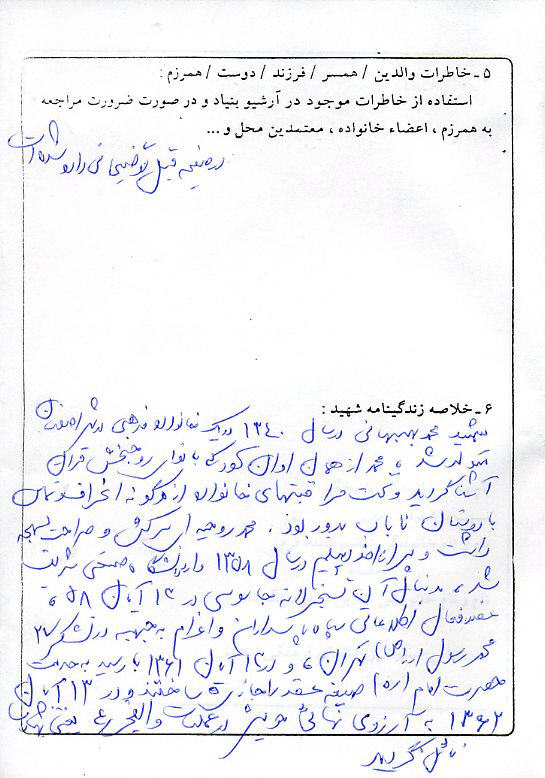 ۵ ـ خاطرات والدین / همسر / فرزند / دوست / همرزم :
استفاده از خاطرات موجود در آرشیو بنیاد و در صورت ضرورت مراجعه
به همرزم ، اعضاء خانواده ، معتمدین محل و ...
در صفحه قبل توضیحاتی داده شده است
۶ ـ خلاصه زندگینامه شهید :
شهید محمد بهبهانی در سال ۱۳۴۰ در یک خانواده مذهبی در شهر
متولد شد ، محمد از همان اوان کودکی با نوای روحبخش قرآن
آشنا گردید و تحت مراقبتهای خانواده از هرگونه انحراف و تماس
با دوستان ناباب بدور بود . محمد روحیه ای سرکش و صراحت لهجه
داشت و پس از اخذ دیپلم در سال ۱۳۵۸ وارد دانشگاه صنعتی شریف
شد ، بدنبال آن تسخیر لانه جاسوسی در ۱۳ آبان ۵۸ ،
عضو فعال اطلاعاتی سپاه پاسداران و اعزام به جبهه در لشکر ۲۷
محمد رسول ا... (ص) تهران ، و در ۱۳ آبان ۱۳۶۱ با رسید به خدمت
حضرت امام (ره) صیغه عقد را جاری ساختند و در ۱۳ آبان
۱۳۶۲ به آرزوی نهائی خویش در عملیات والفجر ۴ یعنی شهادت
نائل گردید